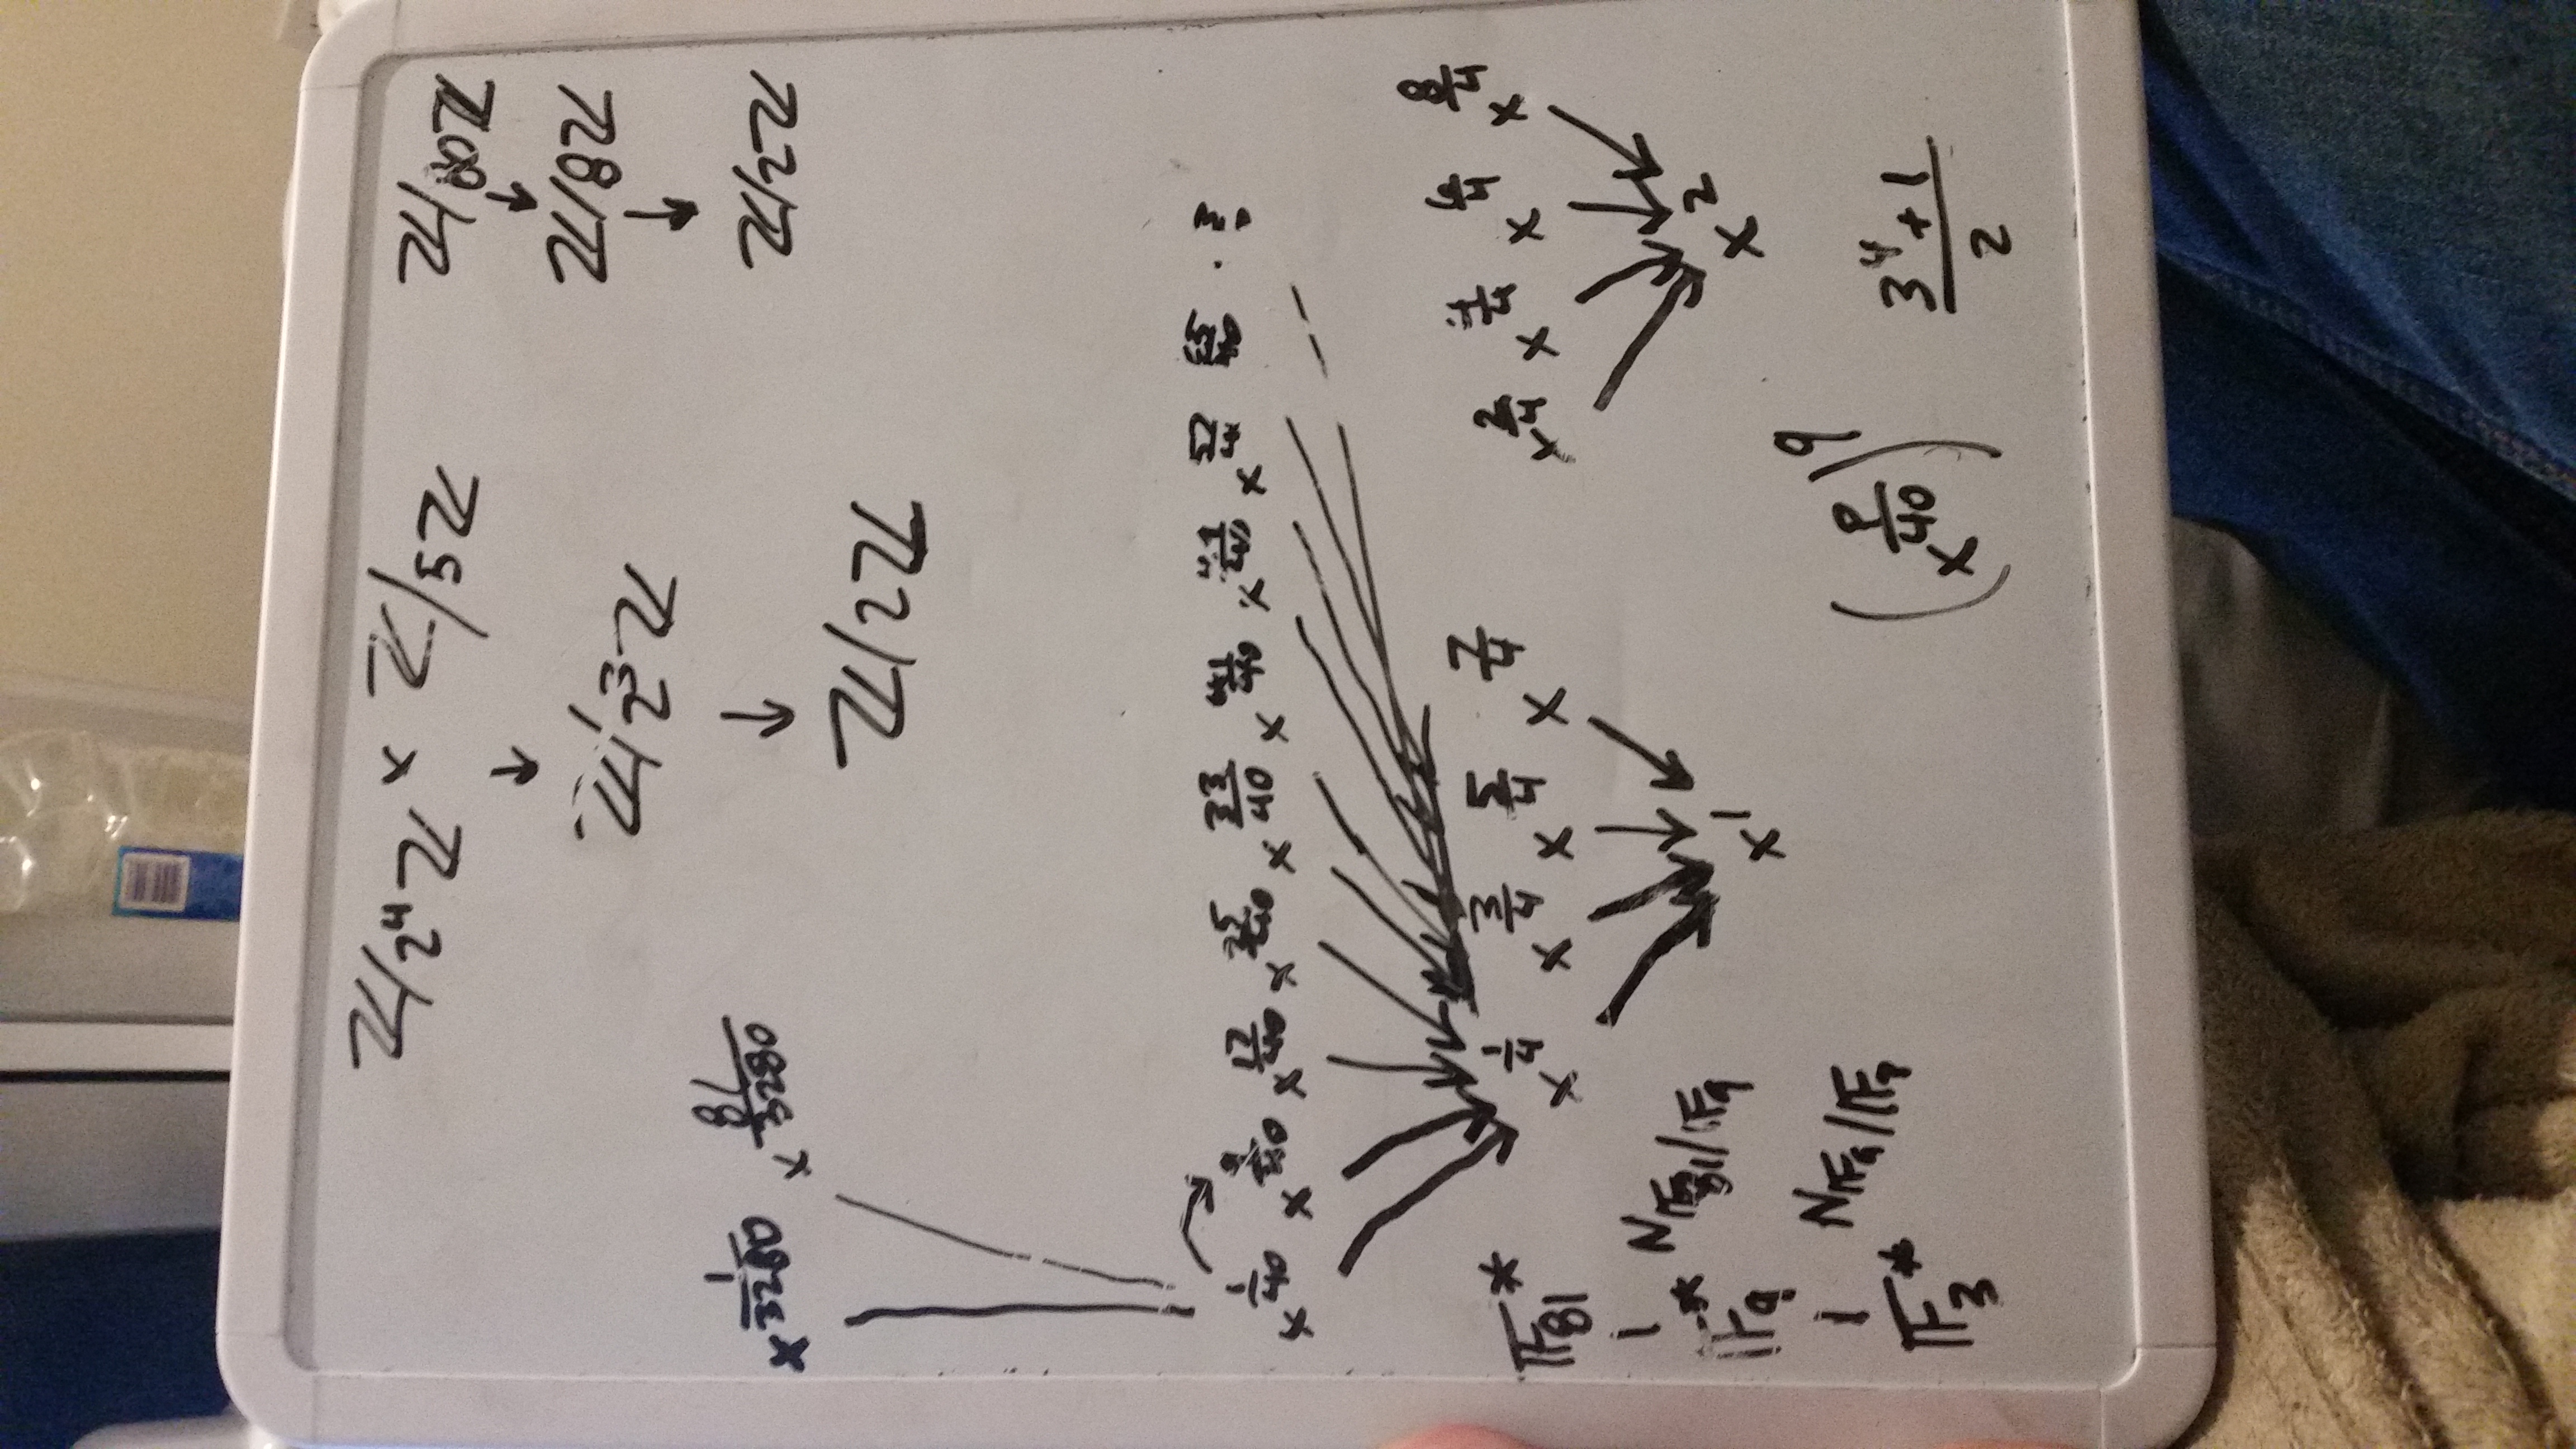 ℤ/2⁴ℤ × ℤ/5ℤ
↓
ℤ/2³ℤ
↓
ℤ/2ℤ
ℤ/80ℤ
↓
ℤ/8ℤ
↓
ℤ/2ℤ
x^(1/3280) x^(81/3280)
x^(1/40) x^(9/40) x^(17/40) x^(25/40) x^(33/40) x^(41/40) x^(49/40) x^(57/4) 65/40
x^(1/4) x^(3/4) x^(5/4) x^(7/4) x^(2/4) x^(4/4) x^(6/4) x^(8/4)
x^1 x^2
𝔽₈₁*
𝔽₉* N 𝔽₈₁/𝔽₉
𝔽₃* N 𝔽₉/𝔽
(x^(p/40))^9 (3⁴+1)/2